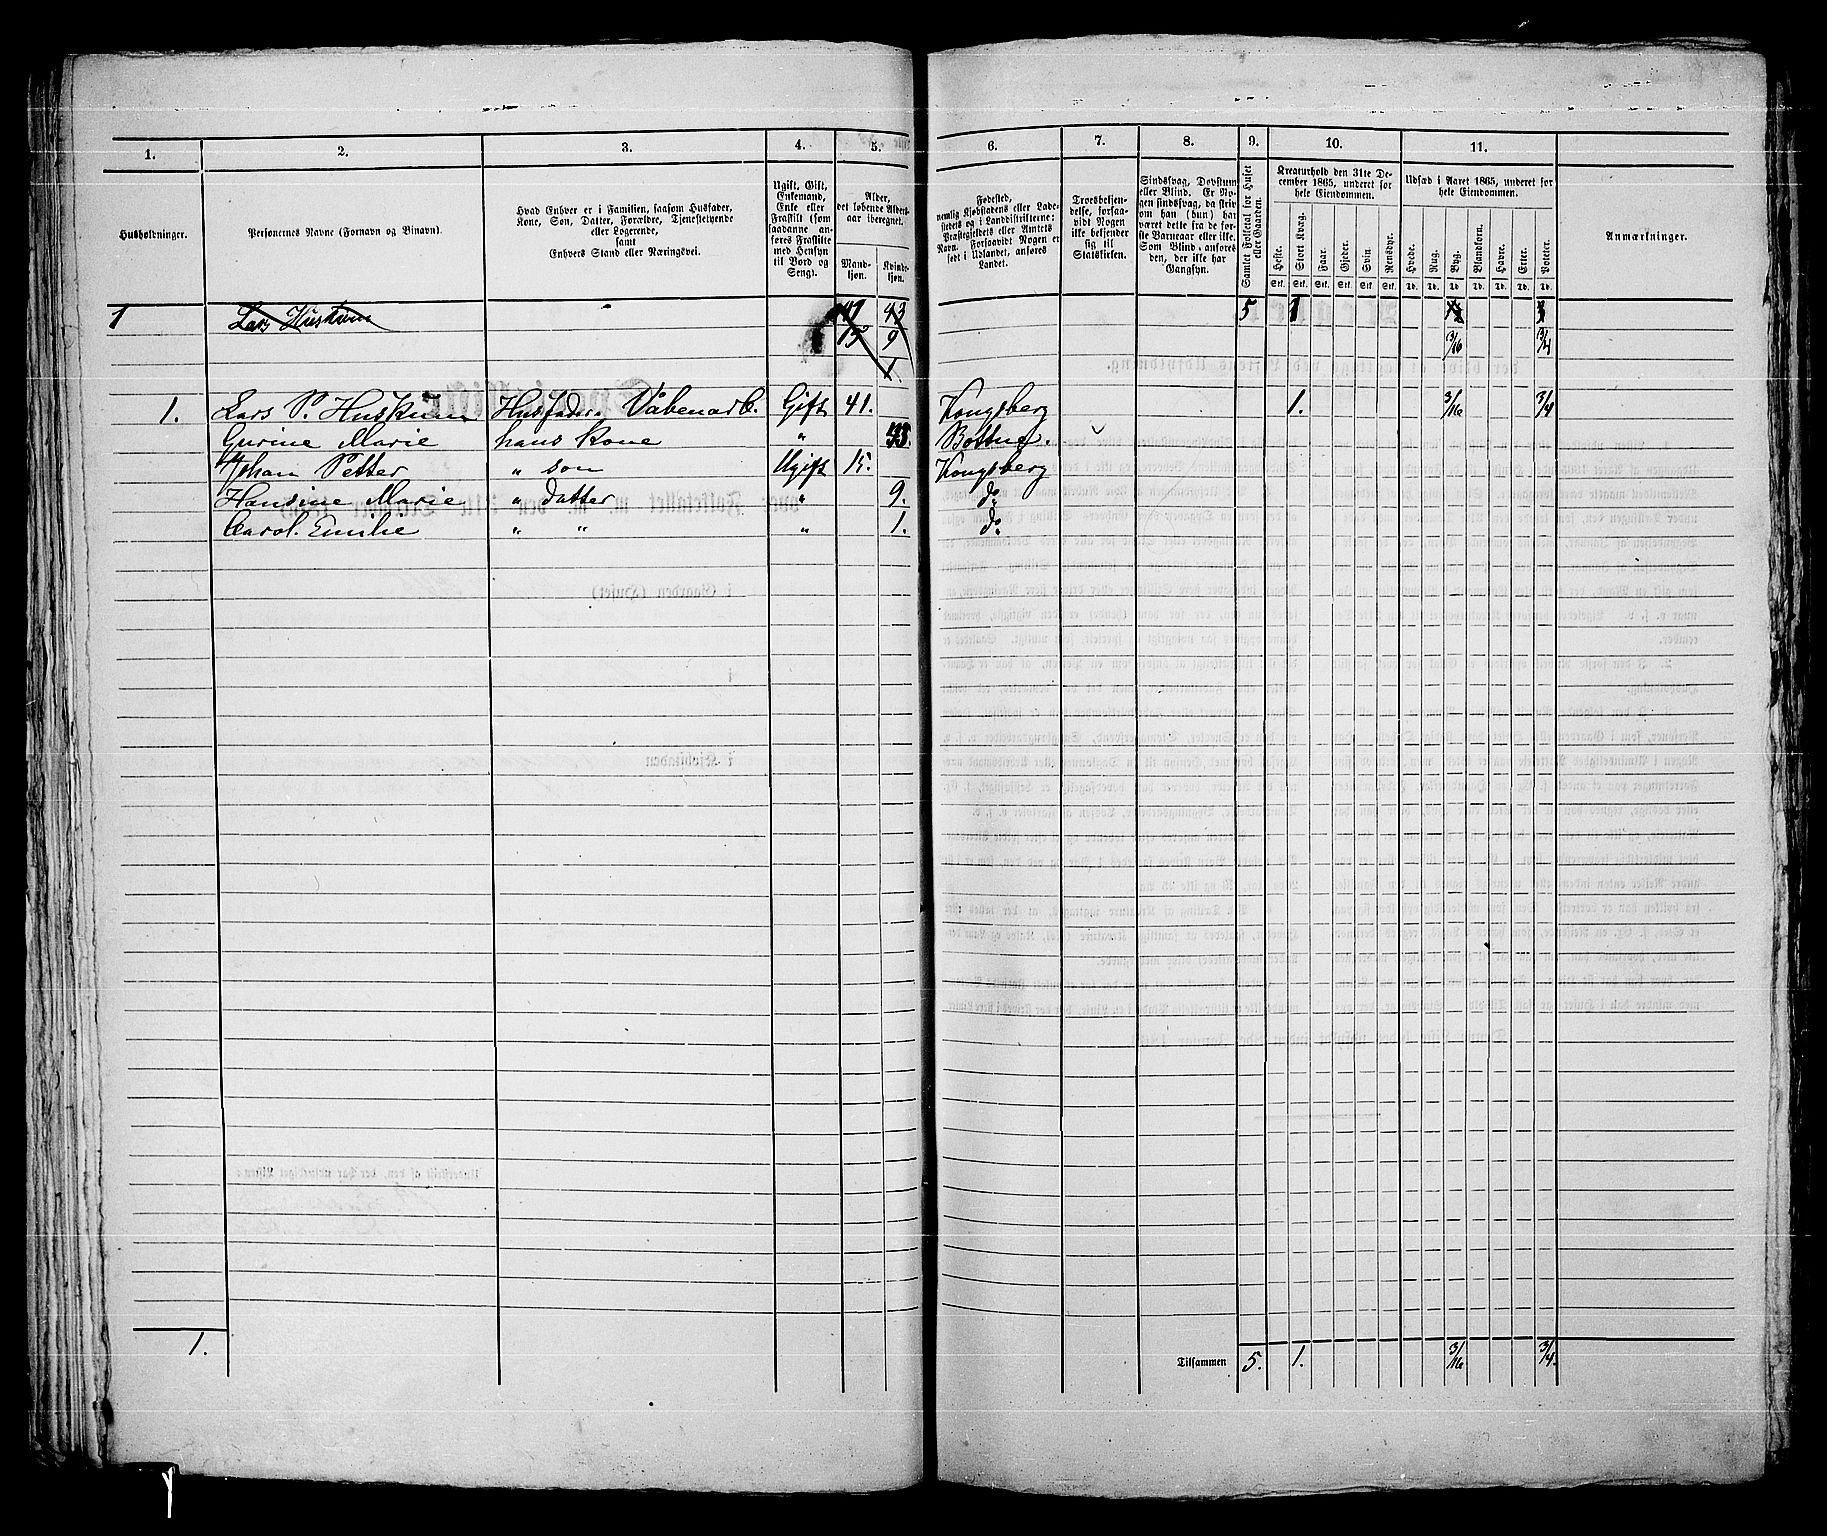 1. 2. 3. 4. 5. 6. 7. 8. 9. 10. 11.
Husholdninger.
Personernes Navne (Fornavn og Binavn).
Hvad Enhver er i Familien, saasom Husfader,
Kone, Søn, Datter, Forældre, Tjenestetyende
eller Logerende,
samt
Enhvers Stand eller Næringsvei.
Ugift, Gift,
Enkemand,
Enke eller
Fraskilt (som
saadanne an-
føres Fraskilte
med Hensyn
til Bord og
Seng).
Alder,
det løbende Alders-
aar iberegnet.
Mand-
kjøn.
Kvinde-
kjøn.
Fødested,
nemlig Kjøbstadens eller Lade-
stedets og i Landdistrikterne:
Præstegjeldets eller Amtets
Navn. Forsaavidt Nogen er
født i Udlandet, anføres
Landet.
Troesbekjen-
delse, forsaa-
vidt Nogen
ikke bekjender
sig til
Statskirken.
Sindssvag, Døvstum
eller Blind. Er No-
gen sindssvag, da skriv
om han (hun) har
været dette fra de før-
ste Barneaar eller ikke.
Som Blind anføres
den, der ikke har
Gangsyn.
Samlet Folketal for Huset
eller Gaarden.
Kreaturhold den 31te De-
cember 1865, underet for
hele Eiendommen.
Heste. Stort Kvæg. Faar. Gjeder. Svin. Rensdyr.
Stk. Stk. Stk. Stk. Stk. Stk.
Udsæd i Aaret 1865, underet for
hele Eiendommen.
Hvede. Rug. Byg. Blandkorn. Havre. Erter. Poteter.
Td. Td. Td. Td. Td. Td. Td.
Anmærkninger.
1 Lars Huskum 43 5 1
15 9 3/16 3/4
1
1. Lars P. Huskum Husfader, Våbenarb. Gift 41. Kongsberg 1. 3/16 3/4
Gurine Marie hans Kone " Bottne.
Johan Petter " son Ugift 15. Kongsberg
Hansine Marie " datter " 9. do
Carol. Emilie " " " 1. do
1. Tilsammen 5. 1. 3/16 3/4.